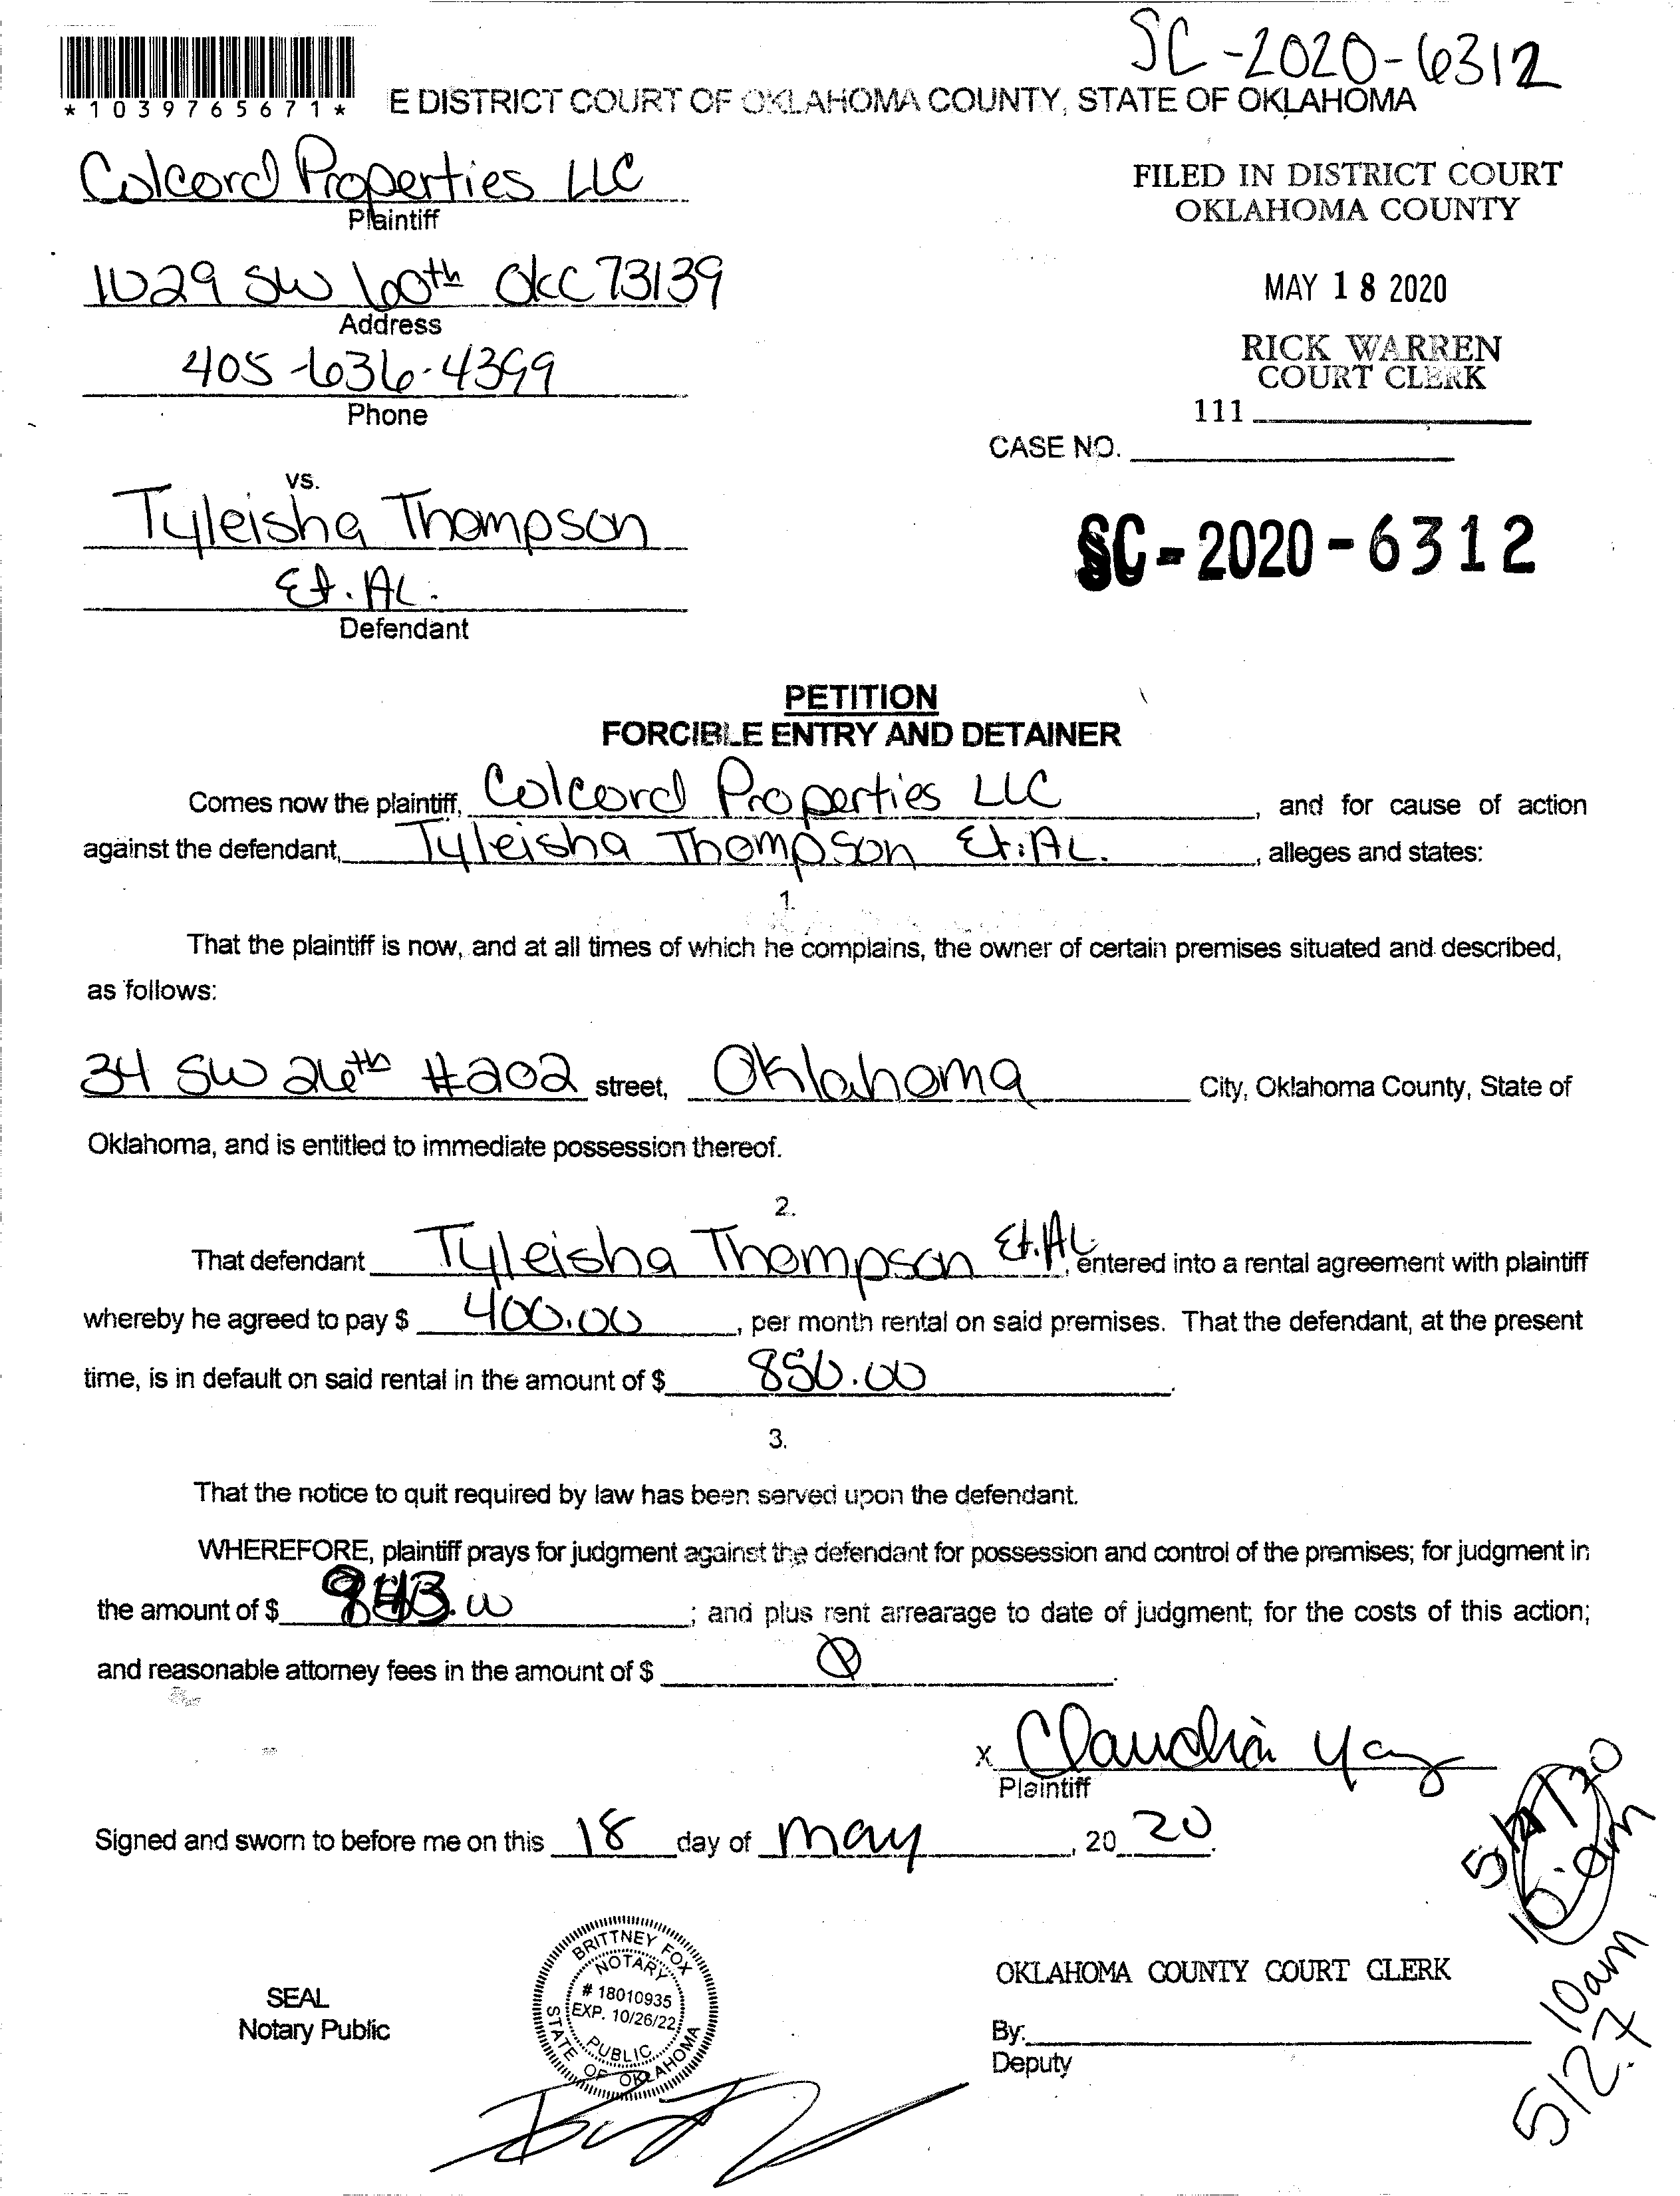 SC-2020-6312
*1039765671*
E DISTRICT COURT OF OKLAHOMA COUNTY, STATE OF OKLAHOMA
Colcord Properties LLC
Plaintiff
FILED IN DISTRICT COURT
OKLAHOMA COUNTY
1029 SW 60th OKC 73139
Address
MAY 18 2020
405-636-4399
Phone
RICK WARREN
COURT CLERK
111
CASE NO.
vs.
Tyleisha Thompson
Et. AL.
Defendant
SC-2020-6312
PETITION
FORCIBLE ENTRY AND DETAINER
Comes now the plaintiff, Colcord Properties LLC, and for cause of action
against the defendant, Tyleisha Thompson Et. AL., alleges and states:
1.
That the plaintiff is now, and at all times of which he complains, the owner of certain premises situated and described,
as follows:
34 SW 26th #202 street, Oklahoma City, Oklahoma County, State of
Oklahoma, and is entitled to immediate possession thereof.
2.
That defendant Tyleisha Thompson Et. AL, entered into a rental agreement with plaintiff
whereby he agreed to pay $ 400.00, per month rental on said premises. That the defendant, at the present
time, is in default on said rental in the amount of $ 850.00.
3.
That the notice to quit required by law has been served upon the defendant.
WHEREFORE, plaintiff prays for judgment against the defendant for possession and control of the premises; for judgment in
the amount of $; and plus rent arrearage to date of judgment; for the costs of this action;
and reasonable attorney fees in the amount of $ 0.
x Claudia
Plaintiff
Signed and sworn to before me on this 18 day of May, 2020.
10:am
BRITTNEY FOX
NOTARY
# 18010935
EXP. 10/26/22
PUBLIC
STATE OF OKLAHOMA
SEAL
Notary Public
OKLAHOMA COUNTY COURT CLERK
By:
Deputy
10am
5/27